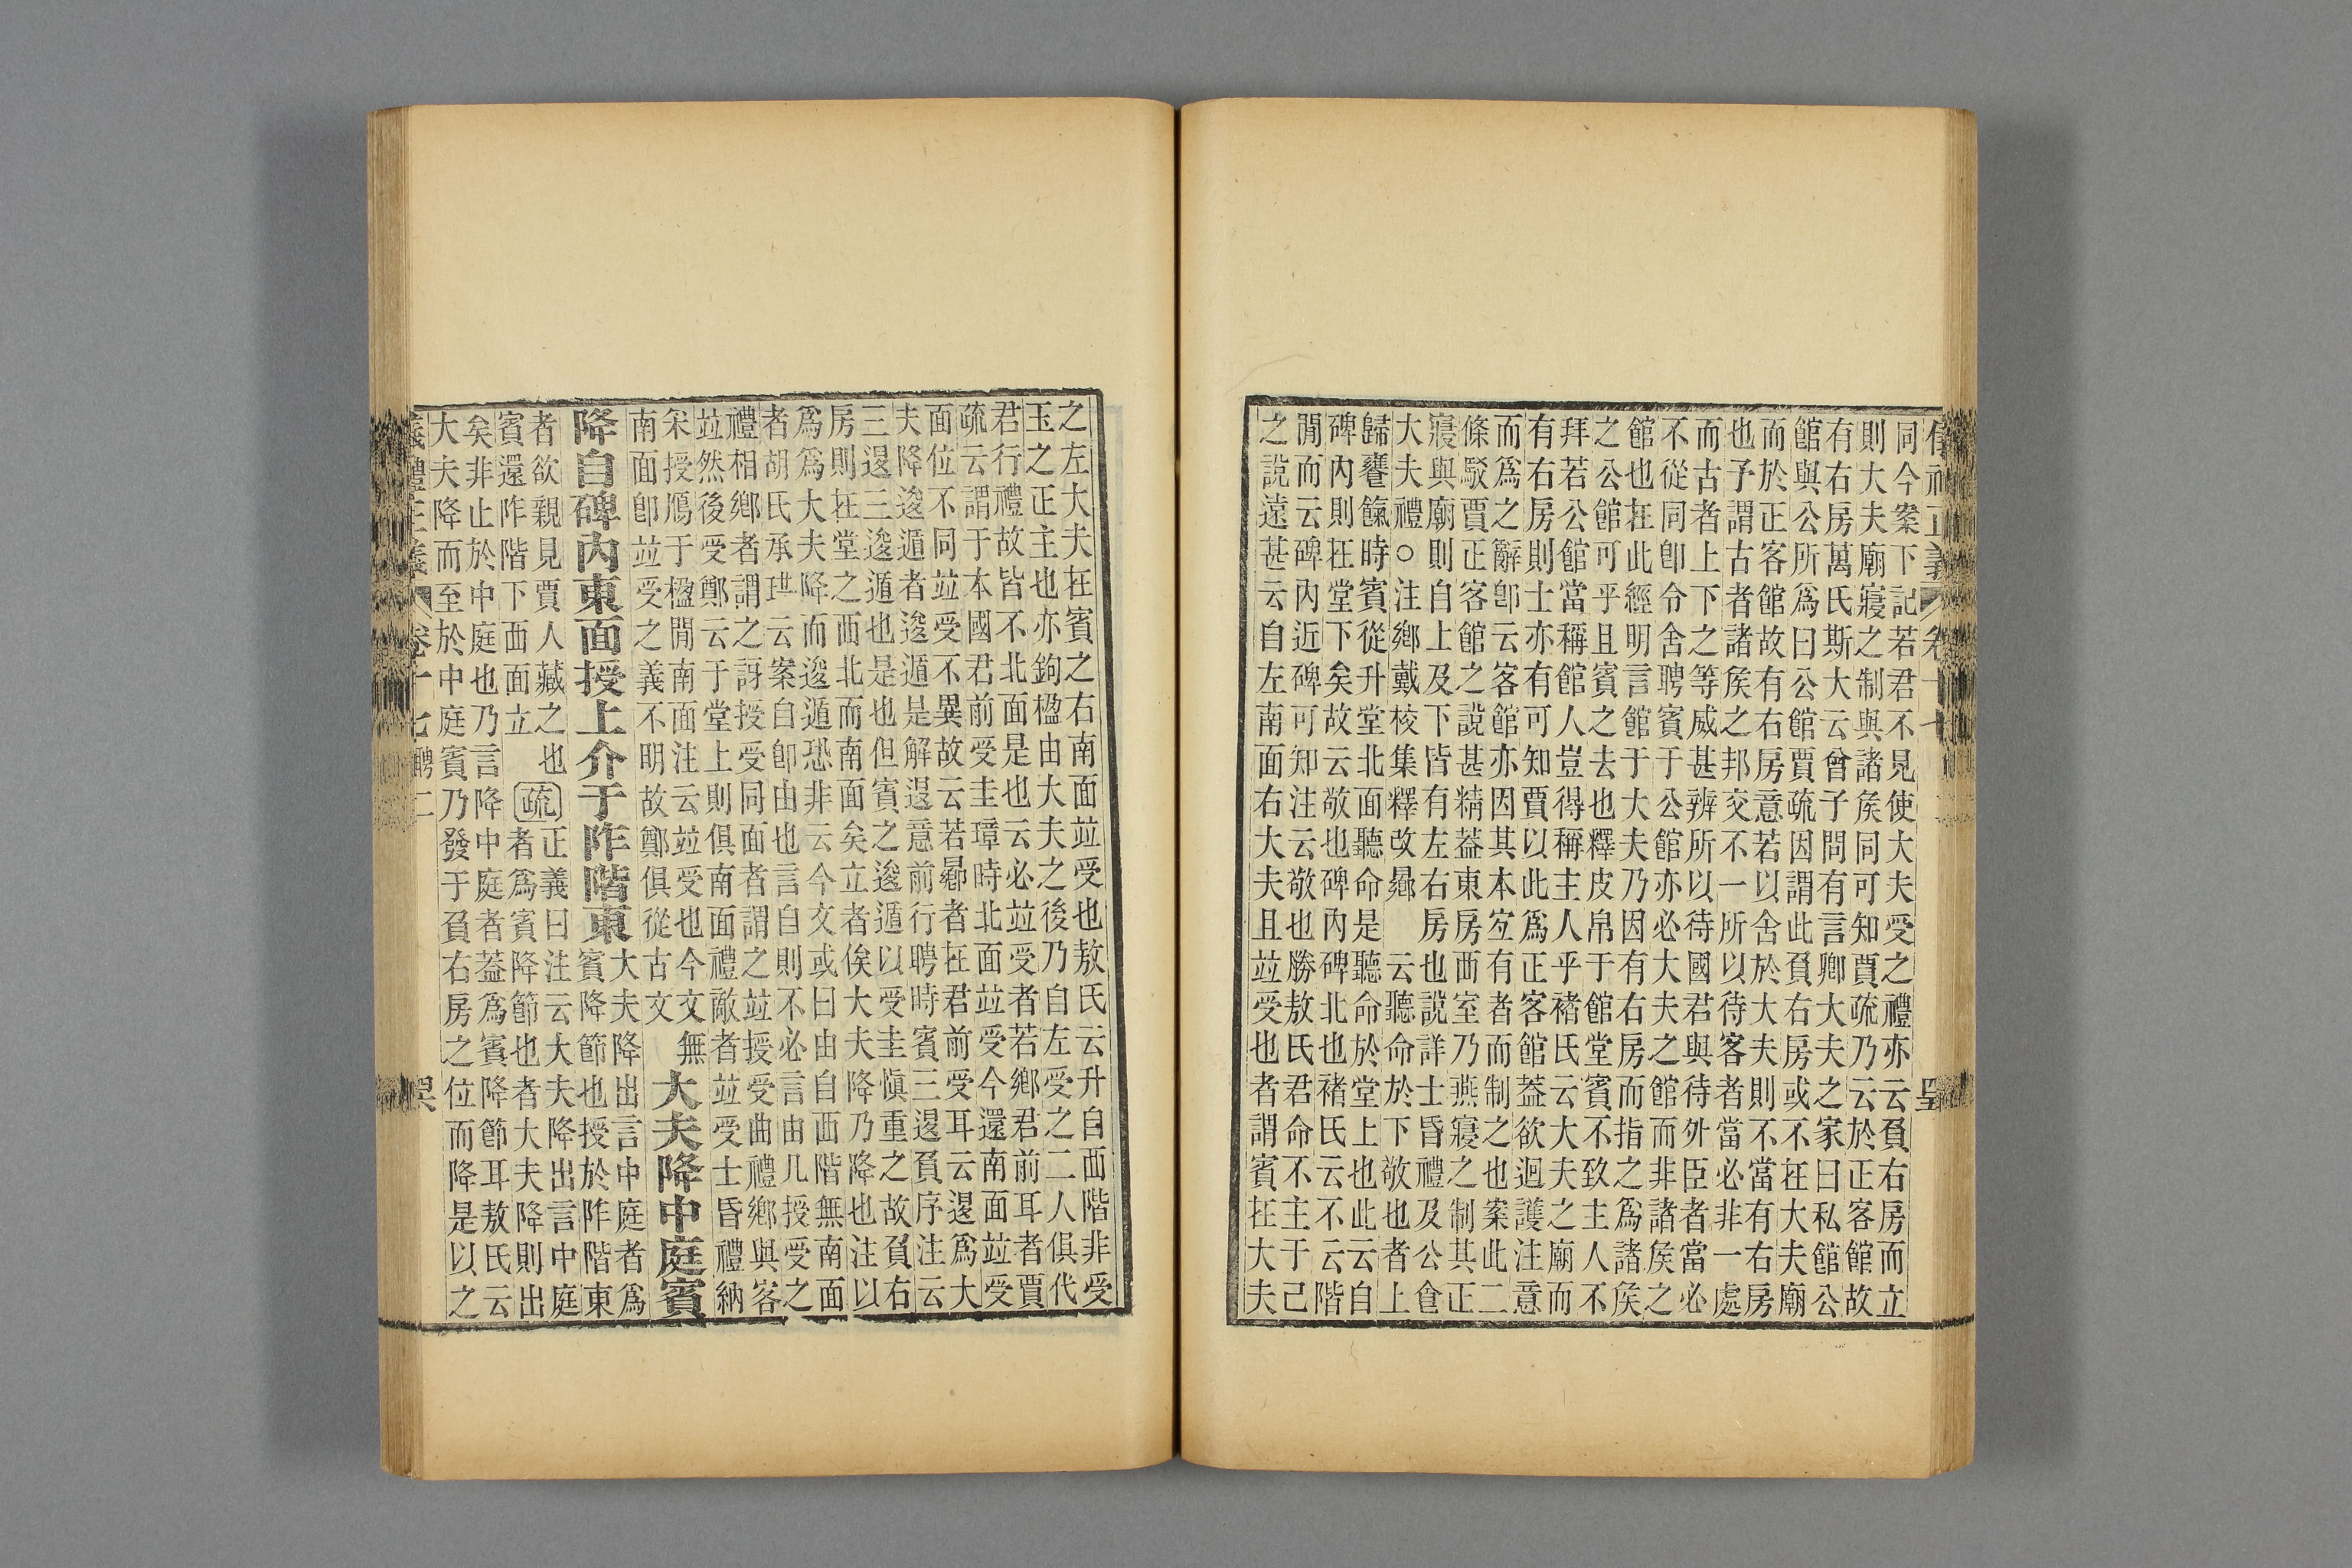 同今案下記若君不見使大夫受之禮亦云負右房而立
則大夫廟寢之制與諸矦同可知賈疏乃云於正客館故
有右房萬氏斯大云曾子問有言卿大夫之家曰私館公
館與公所爲曰公館賈疏因謂此負右房或不在大夫廟
而於正客館故有右房意若以舍於大夫則不當有右房
也予謂古者諸矦之邦交不一所以待客者當必非一處
而古者上下之等威甚辨所以待國君與待外臣者當必
不從同卽令舍聘賓于公館亦必大夫之館而非諸矦之
館也在此經明言館于大夫乃因有右房而指之爲諸矦
之公館可乎且賓之去也釋皮帛于館堂賓不致主人不
拜若公館當稱館人豈得稱主人乎褚氏云大夫之廟而
有右房則士亦有可知賈以此爲正客館蓋欲迴護注意
而爲之辭卽云客館亦因其本宐有者而制之也案此二
條駁賈正客館之說甚精蓋東房西室乃燕寢之制其正
寢與廟則自上及下皆有左右房也說詳士昏禮及公食
大夫禮○注鄉戴校集釋改曏 云聽命於下敬也者上
歸饔餼時賓從升堂北面聽命是聽命於堂上也此云自
碑內則在堂下矣故云敬也碑內碑北也褚氏云不云階
閒而云碑內近碑可知注云敬也勝敖氏君命不主于己
之說遠甚云自左南面右大夫且竝受也者謂賓在大夫
之左大夫在賓之右南面竝受也敖氏云升自西階非受
玉之正主也亦鉤楹由大夫之後乃自左受之二人俱代
君行禮故皆不北面是也云必竝受者若鄉君前耳者賈
疏云謂于本國君前受圭璋時北面竝受今還南面竝受
面位不同竝受不異故云若曏者在君前受耳云退爲大
夫降逡遁者逡遁是解退意前行聘時賓三退負序注云
三退三逡遁也是也但賓之逡遁以受圭愼重之故負右
房則在堂之西北而南面矣立者俟大夫降乃降也注以
爲爲大夫降而逡遁恐非云今文或曰由自西階無南面
者胡氏承珙云案自卽由也言自則不必言由几授受之
禮相鄉者謂之訝授受同面者謂之竝授受曲禮鄉與客
竝然後受鄭云于堂上則俱南面禮敵者竝受士昏禮納
采授鴈于楹閒南面注云竝受也今文無
南面卽竝受之義不明故鄭俱從古文
大夫降中庭賓
降自碑內東面授上介于阼階東
大夫降出言中庭者爲
賓降節也授於阼階東
者欲親見賈人藏之也
賓還阼階下西面立
疏
正義曰注云大夫降出言中庭
者爲賓降節也者大夫降則出
矣非止於中庭也乃言降中庭者蓋爲賓降節耳敖氏云
大夫降而至於中庭賓乃發于負右房之位而降是以之
卷十七 聘二